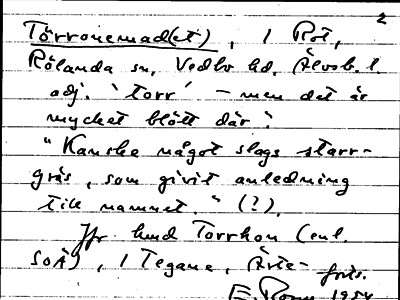 2
Törronemad(et), 1 Rot,
Rölanda sn, Vedbo hd, Älvsb. l.
adj. 'torr' – men det är
mycket blött där.
"Kanske något slags starr-
gräs, som givit anledning
till namnet." (?).
Jfr hmd Torrkon (enl.
SOÄ), 1 Tegane, Ärte-
E. 1954